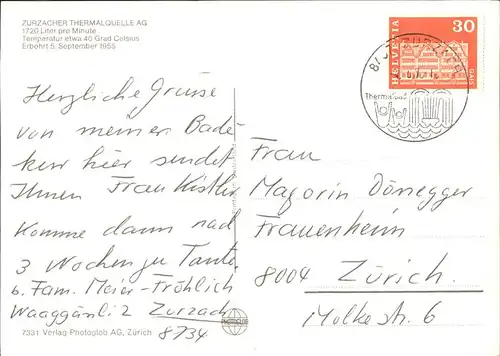 ZURZACHER THERMALQUELLE AG
1720 Liter pro Minute
Temperatur etwa 40 Grad Celsius
Erbohrt 5. September 1955
HELVETIA
30
GAIS
ZURZACH
Thermalbad
Herzliche Grüsse
von meiner Bade-
kur hier sendet
Ihnen Frau Kistler
Komme dann nach
3 Wochen zu Tante
b. Fam. Maier-Fröhlich
Waaggässli 2 Zurzach
8734
Frau
Majorin Dönegger
Frauenheim
8004 Zürich.
Molkestr. 6
7331 Verlag Photoglob AG, Zürich